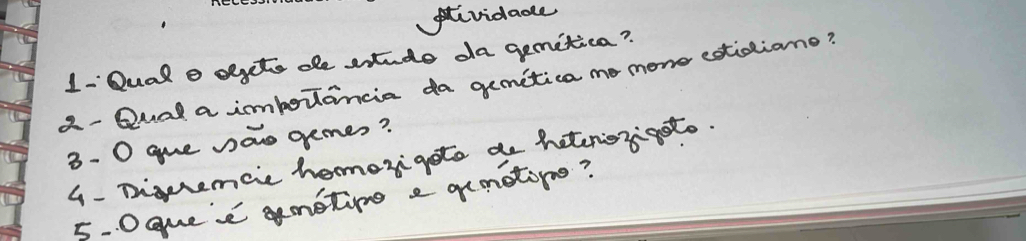 Atividade
1-Qual o objeto de estudo da genética?
2- Qual a importância da genética no nosso cotidiano?
3- O que são genes?
4- Diferencie homozigoto de heteriozigoto.
5-O que é genótipo e genótipo?